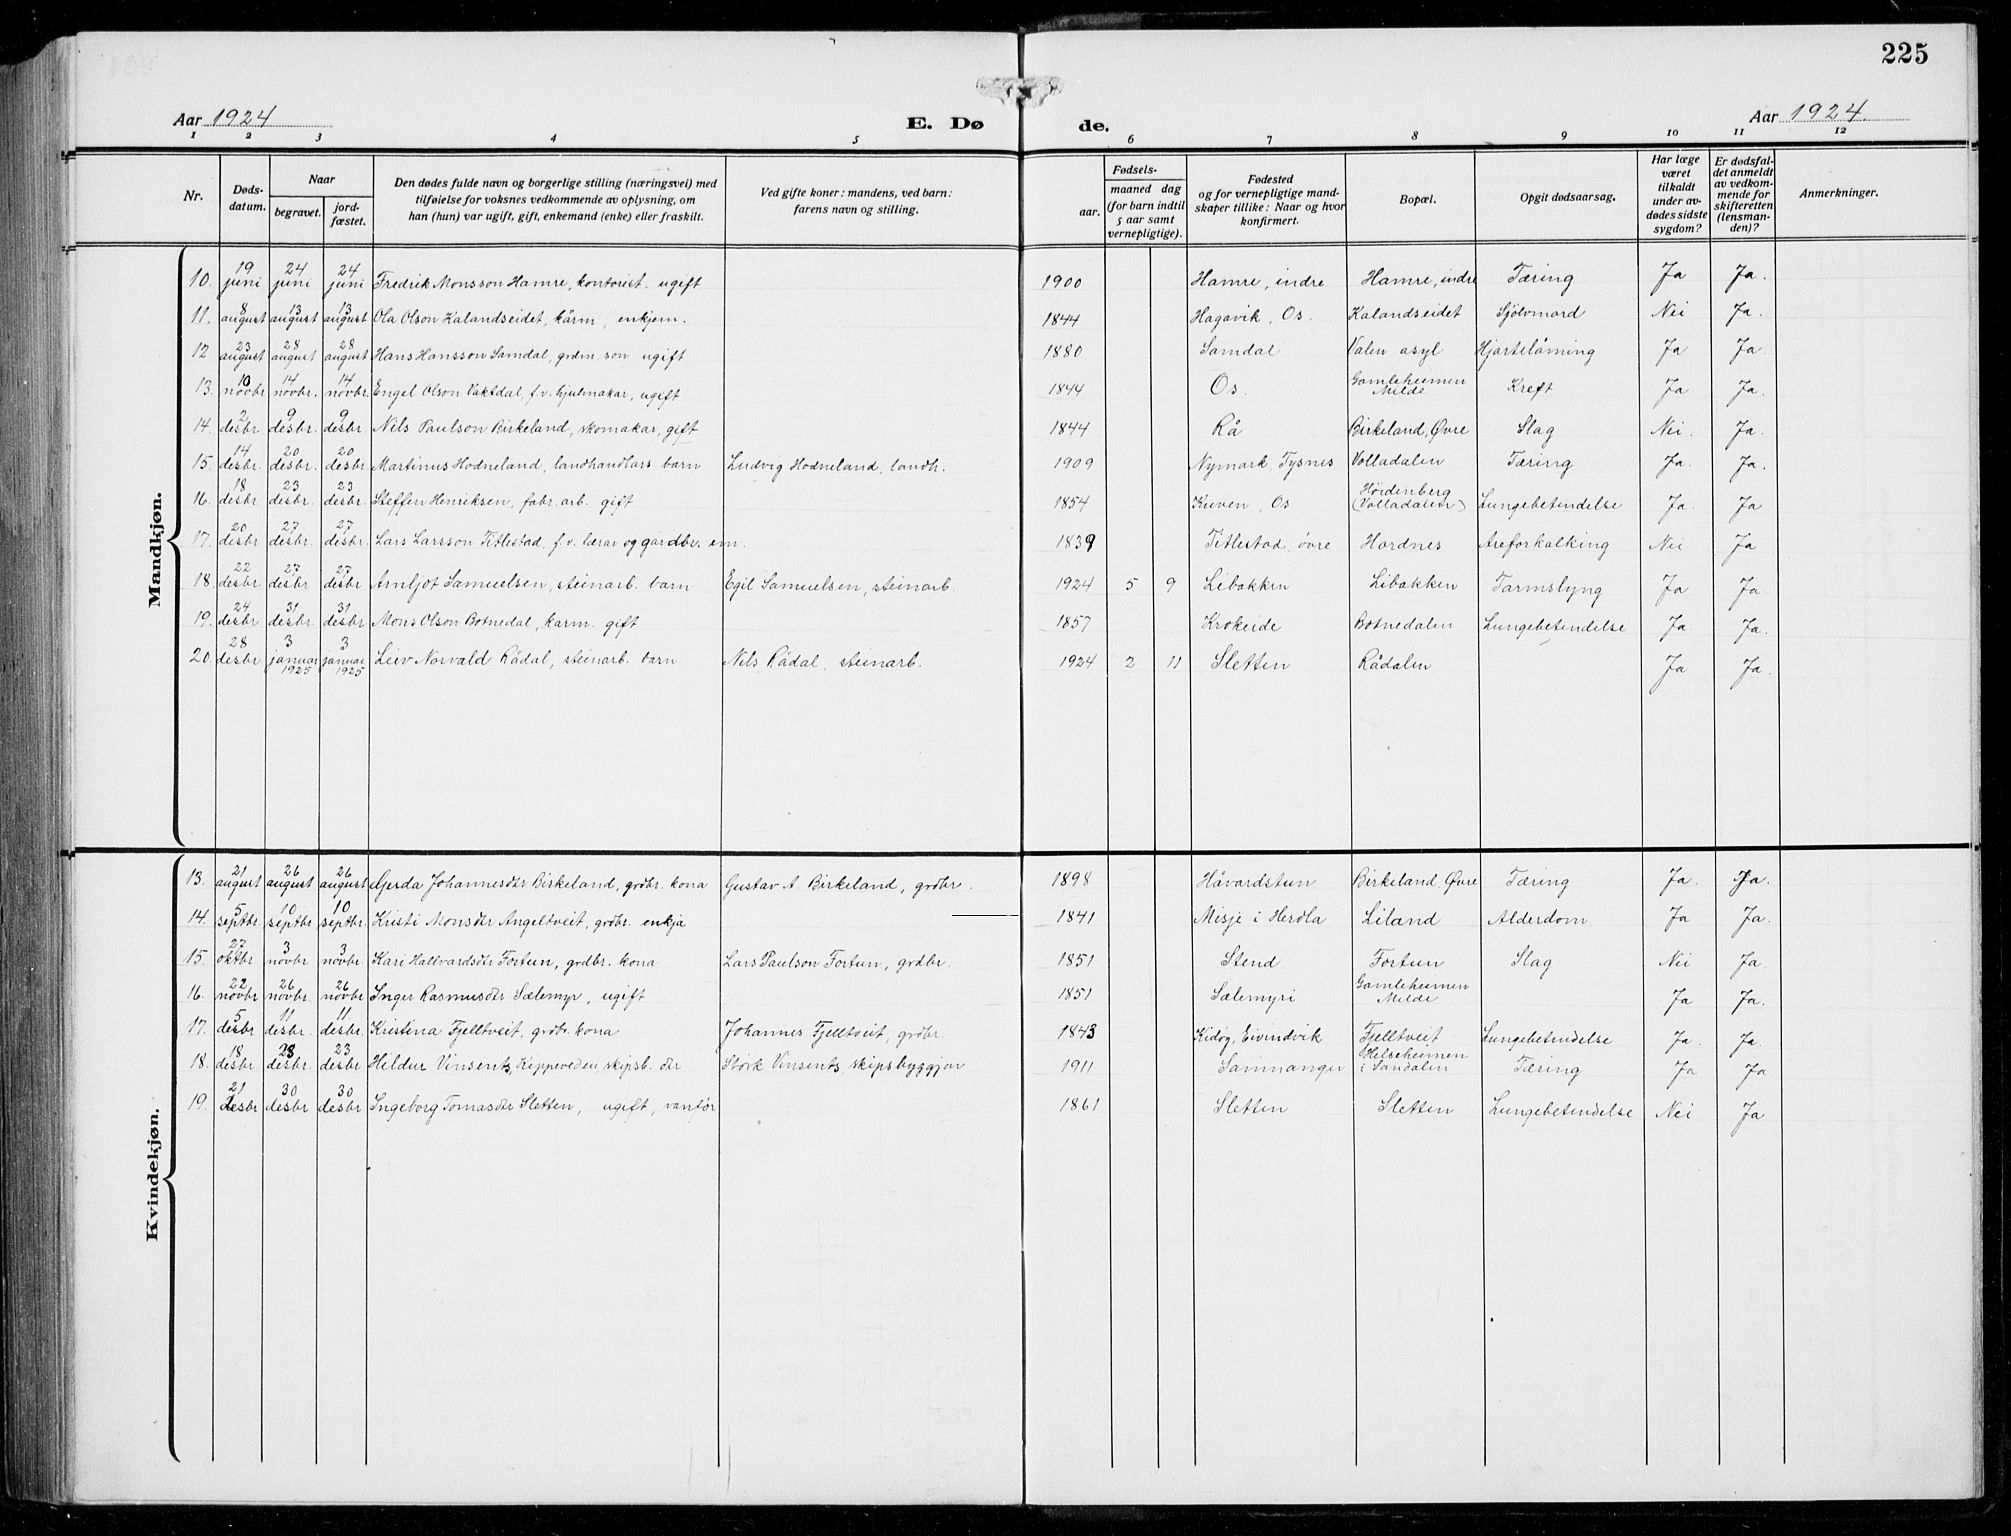 225
Aar 1924
E. Dø
de.
Aar 1924.
1 2 3 4 5 6 7 8 9 10 11 12
Nr.
Døds-
datum.
Naar
begravet.
jord-
fæstet.
Den dødes fulde navn og borgerlige stilling (næringsvei) med
tilføielse for voksnes vedkommende av oplysning, om
han (hun) var ugift, gift, enkemand (enke) eller fraskilt.
Ved gifte koner: mandens, ved barn:
farens navn og stilling.
Fødsels-
aar.
maaned dag
(for barn indtil
5 aar samt
vernepligtige).
Fødested
og for vernepligtige mand-
skaper tillike: Naar og hvor
konfirmert.
Bopæl.
Opgit dødsaarsag.
Har læge
været
tilkaldt
under av-
dødes sidste
sygdom?
Er dødsfal-
det anmeldt
av vedkom-
mende for
skifteretten
(lensman-
den)?
Anmerkninger.
Mandkjøn.
10. 19 juni 24 juni 24 juni Fredrik Monsson Hamre, kontorist. ugift 1900 Hamre, indre Hamre, indre Tæring Ja Ja.
11. 8 august 13 august 13 august Ola Olson Kalandseidet, kårm, enkjem. 1844 Hagavik, Os. Kalandseidet Sjölvmord Nei Ja.
12. 23 august 28 august 28 august Hans Hansson Samdal, grdm. son ugift 1880 Samdal Valen asyl Hjartelåming Ja Ja.
13. 10 novbr 14 novbr. 14 novbr. Engel Olson Vaktdal, f.v. hjulmakar, ugift 1844 Os. Gamleheimen Milde Kreft Ja Ja.
14. 2 desbr. 9 desbr. 9 desbr Nils Paulson Birkeland, skomakar, gift 1844 Rå Birkeland, Øvre Slag Nei. Ja.
15. 14 desbr. 20 desbr. 20 desbr Martinus Hodneland, landhandlars barn Ludvig Hodneland, landh. 1909 Nymark, Tysnes Volladalen Tæring Ja. Ja.
16. 18 desbr 23 desbr. 23 desbr. Steffen Henriksen, fabr. arb. gift 1854 Kuven, Os (Volladalen) Lungebetendelse Ja. Ja
17. 20 desbr 27 desbr 27 desbr. Lars Larsson Titlestad, f.v. lærar og gardbr. em. 1839 Titlestad, övre Hordnes Areforkalking Nei Ja
18. 22 desbr. 27 desbr 27 desbr. Arnljot Samuelsen, steinarb. barn Egil Samuelsen, steinarb. 1924 5 9 Libakken Libakken Tarmslyng Ja Ja.
19. 24 desbr 31 desbr. 31 desbr. Mons Olson Botnedal, karm. gift 1857 Krokeide Botnedalen Lungebetendelse Ja Ja.
20. 28 desbr 3 januar 1925 3 januar 1925 Leiv Norvald Rådal, steinarb. barn Nils Rådal, steinarb. 1924 2 11 Sletten Rådalen Ja Ja.
Kvindekjøn.
13. 21 august 26 august 26 august Gerda Johannesdtr Birkeland, grdbr. kona Gustav A. Birkeland, grdbr. 1898 Håvardstun Birkeland, Øvre Tæring Ja. Ja.
14. 5 septbr. 10 septbr 10 septbr. Kristi Monsdtr Angeltveit, grdbr. enkja 1841 Misje i Herdla Liland Alderdom Ja Ja.
15. 27 oktbr 3 novbr 3 novbr. Kari Hallvardsdtr Fortun, grdbr. kona Lars Paulson Fortun, grdbr. 1851 Stend Fortun Slag Nei Ja.
16. 22 novbr 26 novbr. 26 novbr Inger Rasmusdtr Sælemyr, ugift 1851 Sælemyri Gamleheimen Milde Ja Ja.
17. 5 desbr 11 desbr. 11 desbr. Kristina Fjelltveit, grdbr. kona Johannes Fjelltveit, grdbr. 1843 Eivindvik Fjelltveit Lungebetendelse Ja. Ja.
18. 18 desbr. 23 desbr. 23 desbr Hildur Vinsents, skipsb. dtr Störk Vinsents, skipsbyggjar 1911 Samnanger Helseheimen i Sandalen Tæring Ja Ja
19. 21 desbr 30 desbr 30 desbr Ingeborg Tomasdtr Sletten, ugift, vanför 1861 Sletten Sletten Lungebetendelse Nei Ja